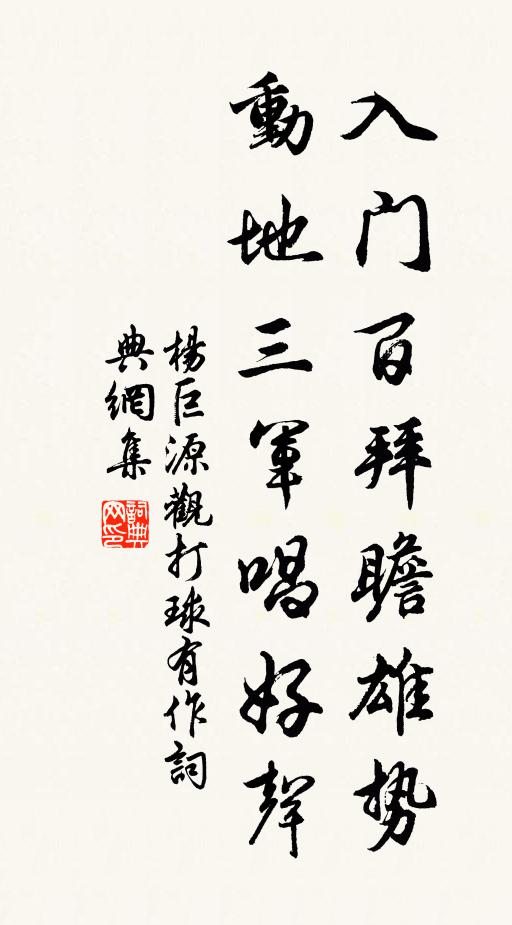 入门百拜瞻雄势
動地三軍唱好聲
楊巨源觀打球有作詞
典網集
詞典網印